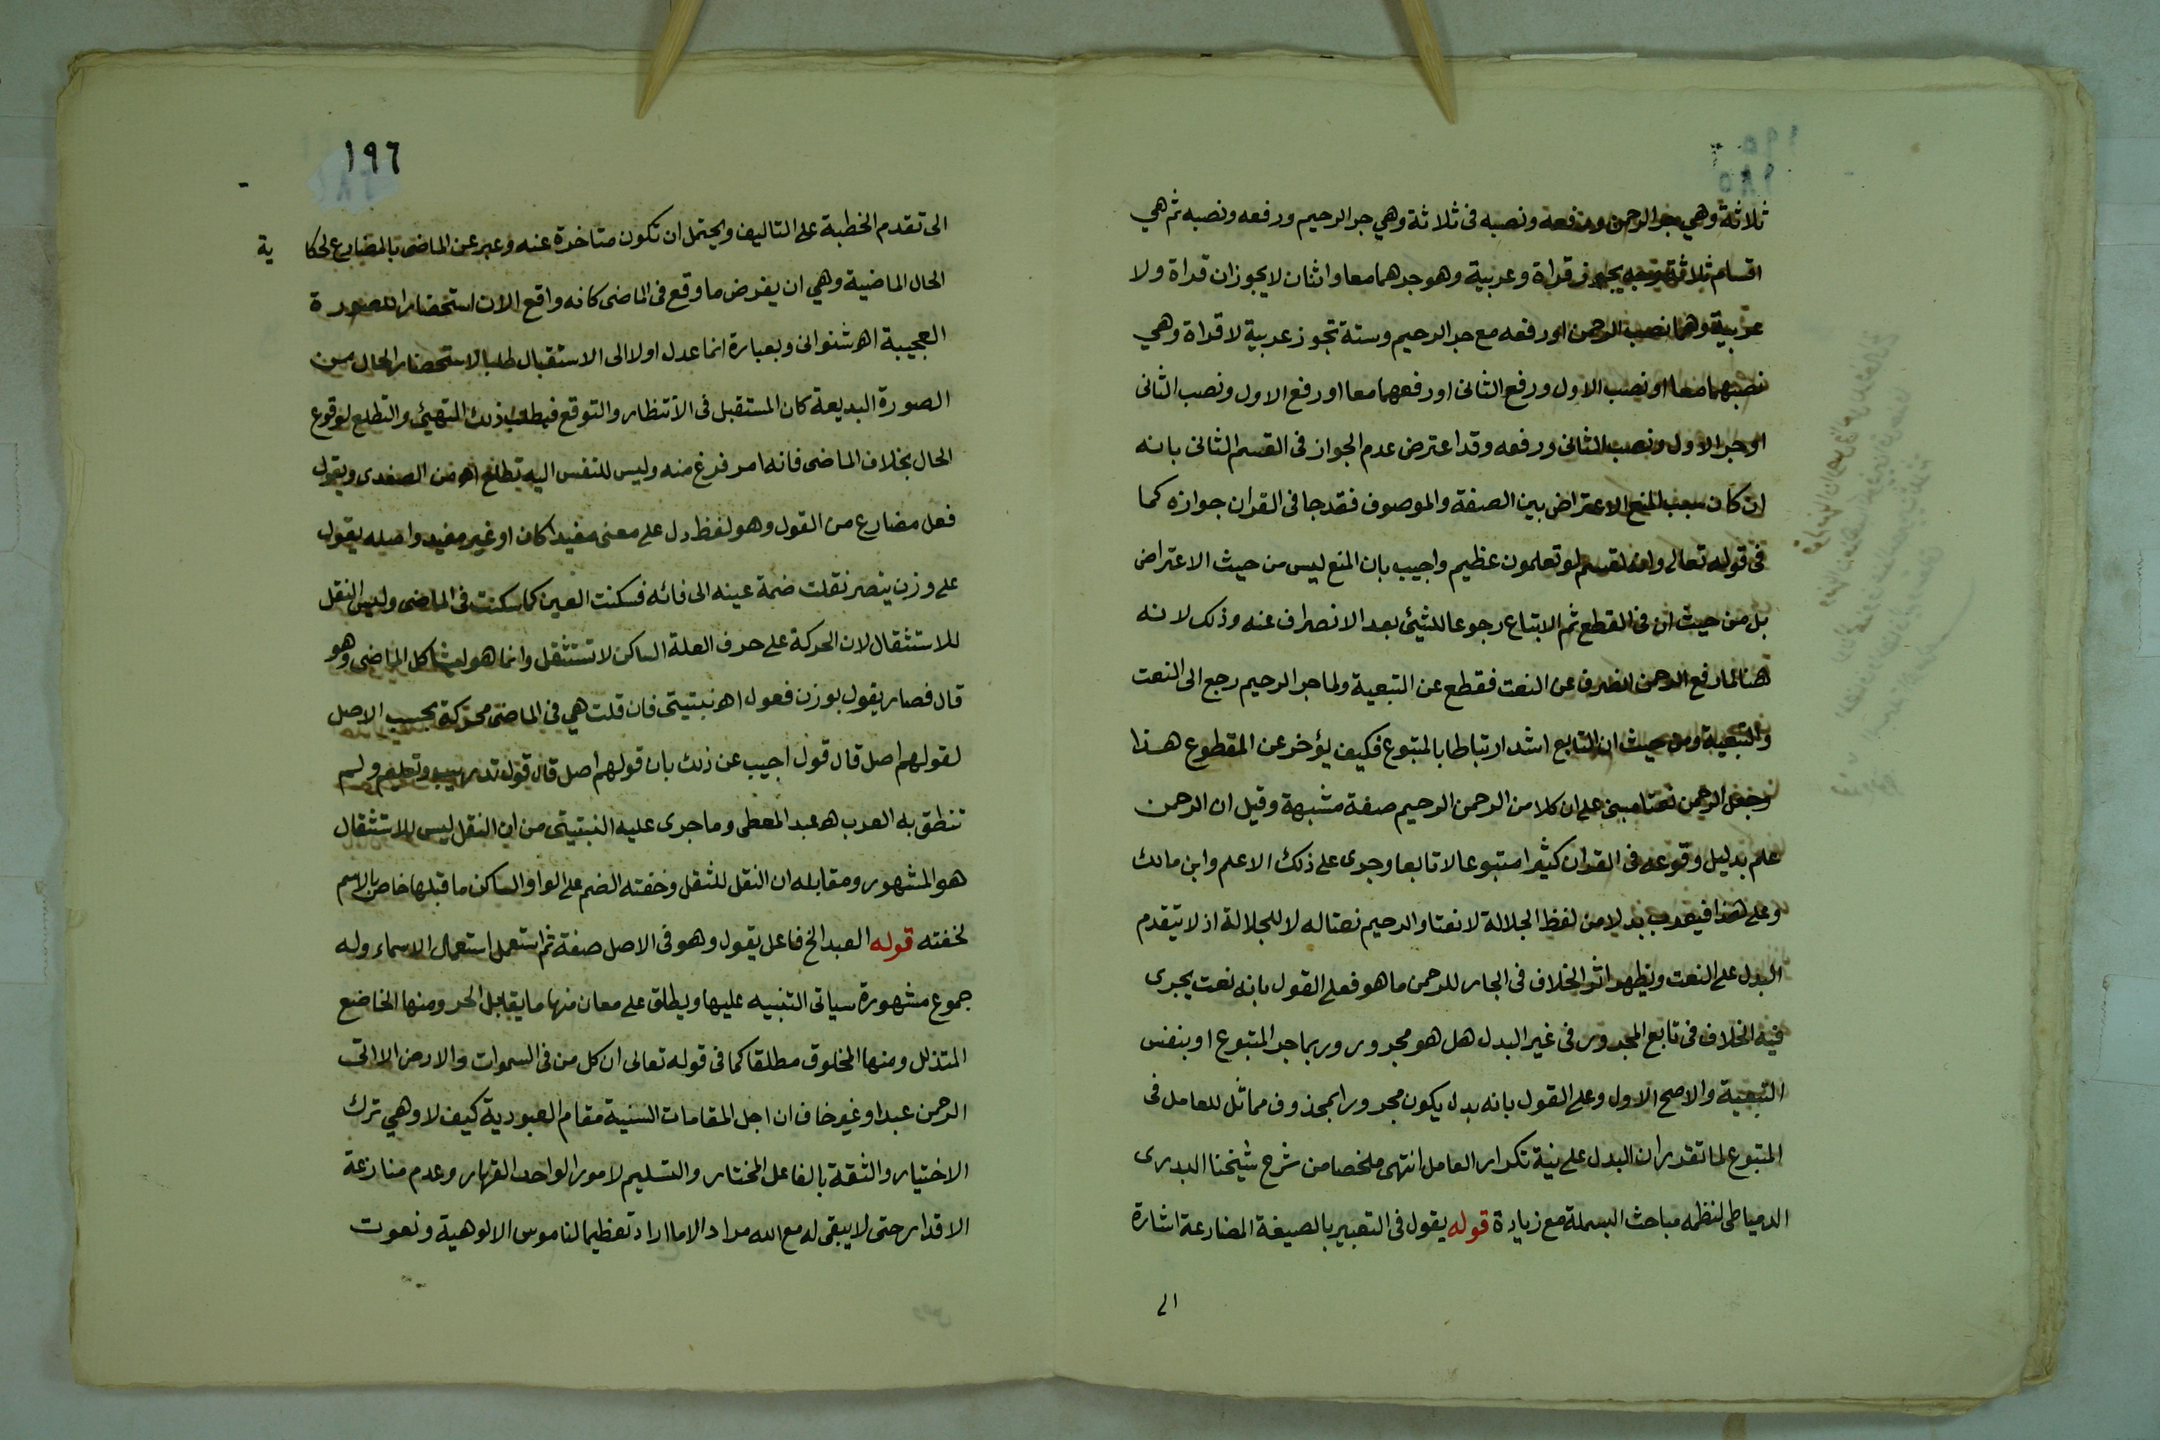 ثلاثة وهي جر الرحمن ورفعه ونصبه فى ثلاثة وهي جر الرحيم ورفعه ونصبه ثم هي
اقسام ثلاثة يجوز قراة وعربية وهو جرهما معا واثنان لا يجوزان قراة ولا
عربية وهما نصب الرحمن او رفعه مع جر الرحيم وستة تجوز عربية لا قراة وهي
نصبهما معا او نصب الاول ورفع الثانى او رفعهما معا او رفع الاول ونصب الثانى
او جر الاول ونصب الثانى ورفعه وقد اعترض عدم الجواز فى القسم الثانى بانه
ان كان سبب المنع الاعتراض بين الصفة والموصوف فقد جا فى القران جوازه كما
فى قوله تعالى وانه لقسم لو تعلمون عظيم واجيب بان المنع ليس من حيث الاعتراض
بل من حيث ان فى القطع ثم الاتباع رجوعا للشيئ بعد الانصراف عنه وذلك لانه
هنا لما رفع الرحمن انصرف عن النعت فقطع عن التبعية ولما جر الرحيم رجع الى النعت
والتبعية ومن حيث ان التابع اشد ارتباطا بالمتبوع فكيف يؤخر عن المقطوع هذا
وجعل الرحمن نعتا مبنى على ان كلا من الرحمن الرحيم صفة مشبهة وقيل ان الرحمن
علم بدليل وقوعه فى القران كثيرا متبوعا لا تابعا وجرى على ذلك الاعلم وابن مالك
وعلى هذا فيعرب بدلا من لفظ الجلالة لا نعتا والرحيم نعتا له لا للجلالة اذ لا يتقدم
البدل على النعت ويظهر اثر الخلاف فى الجار للرحمن ما هو فعلى القول بانه نعت يجرى
فيه الخلاف فى تابع المجرور فى غير البدل هل هو مجرور بما جر المتبوع او بنفس
التبعية والاصح الاول وعلى القول بانه بدل يكون مجرورا بمحذوف مماثل للعامل فى
المتبوع لما تقرر ان البدل على نية تكرار العامل انتهى ملخصا من شرح شيخنا البدرى
الدمياطى لنظمه مباحث البسملة مع زيادة قوله يقول فى التعبير بالصيغة المضارعة اشارة
الى
١٩٦
الى تقدم الخطبة على التاليف ويحتمل ان تكون متاخرة عنه وعبر عن الماضى بالمضارع لحكاية
الحال الماضية وهي ان يفرض ما وقع فى الماضى كانه واقع الان استحضارا للصورة
العجيبة اه شنوانى وبعبارة انما عدل اولا الى الاستقبال طلبا لاستحضار الحال من
الصورة البديعة كان المستقبل فى الانتظار والتوقع فيطلب ذلك التهيئ والتطلع لوقوع
الحال بخلاف الماضى فانه امر فرغ منه وليس للنفس اليه تطلع اه من الصفدى ويقول
فعل مضارع من القول وهو لفظ دل على معنى مفيدا كان او غير مفيد واصله يقول
على وزن ينصر نقلت ضمة عينه الى فائه فسكنت العين كما سكنت فى الماضى وليس النقل
للاستثقال لان الحركة على حرف العلة الساكن لا تستثقل وانما هو لمشاكل الماضى وهو
قال فصار يقول بوزن فعول اه نبتيتى فان قلت هي فى الماضى محركة بحسب الاصل
لقولهم اصل قال قول اجيب عن ذلك بان قولهم اصل قال قول تدريب وتعليم ولم
تنطق به العرب اه عبد المعطى وما جرى عليه النبتيتى من ان النقل ليس للاستثقال
هو المشهور ومقابله ان النقل للثقل وخفته الضم على الواو الساكن ما قبلها خاص بالاسم
لخفته قوله العبد الخ فاعل يقول وهو فى الاصل صفة ثم استعمل استعمال الاسماء وله
جموع مشهورة سياتى التنبيه عليها ويطلق على معان منها ما يقابل الحر ومنها الخاضع
المتذلل ومنها المخلوق مطلقا كما فى قوله تعالى ان كل من فى السموات والارض الا اتى
الرحمن عبدا وغير خاف ان اجل المقامات السنية مقام العبودية كيف لا وهي ترك
الاختيار والثقة بالفاعل المختار والتسليم لامور الواحد القهار وعدم منازعة
الاقدار حتى لا يبقى له مع الله مراد الا ما اراد تعظيما لناموس الالوهية ونعوت